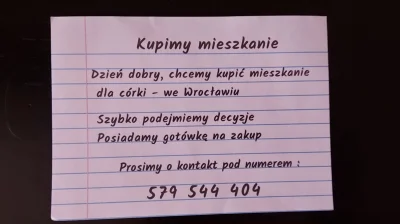 Kupimy mieszkanie
Dzień dobry, chcemy kupić mieszkanie
dla córki - we Wrocławiu
Szybko podejmiemy decyzje
Posiadamy gotówkę na zakup
Prosimy o kontakt pod numerem :
579 544 404